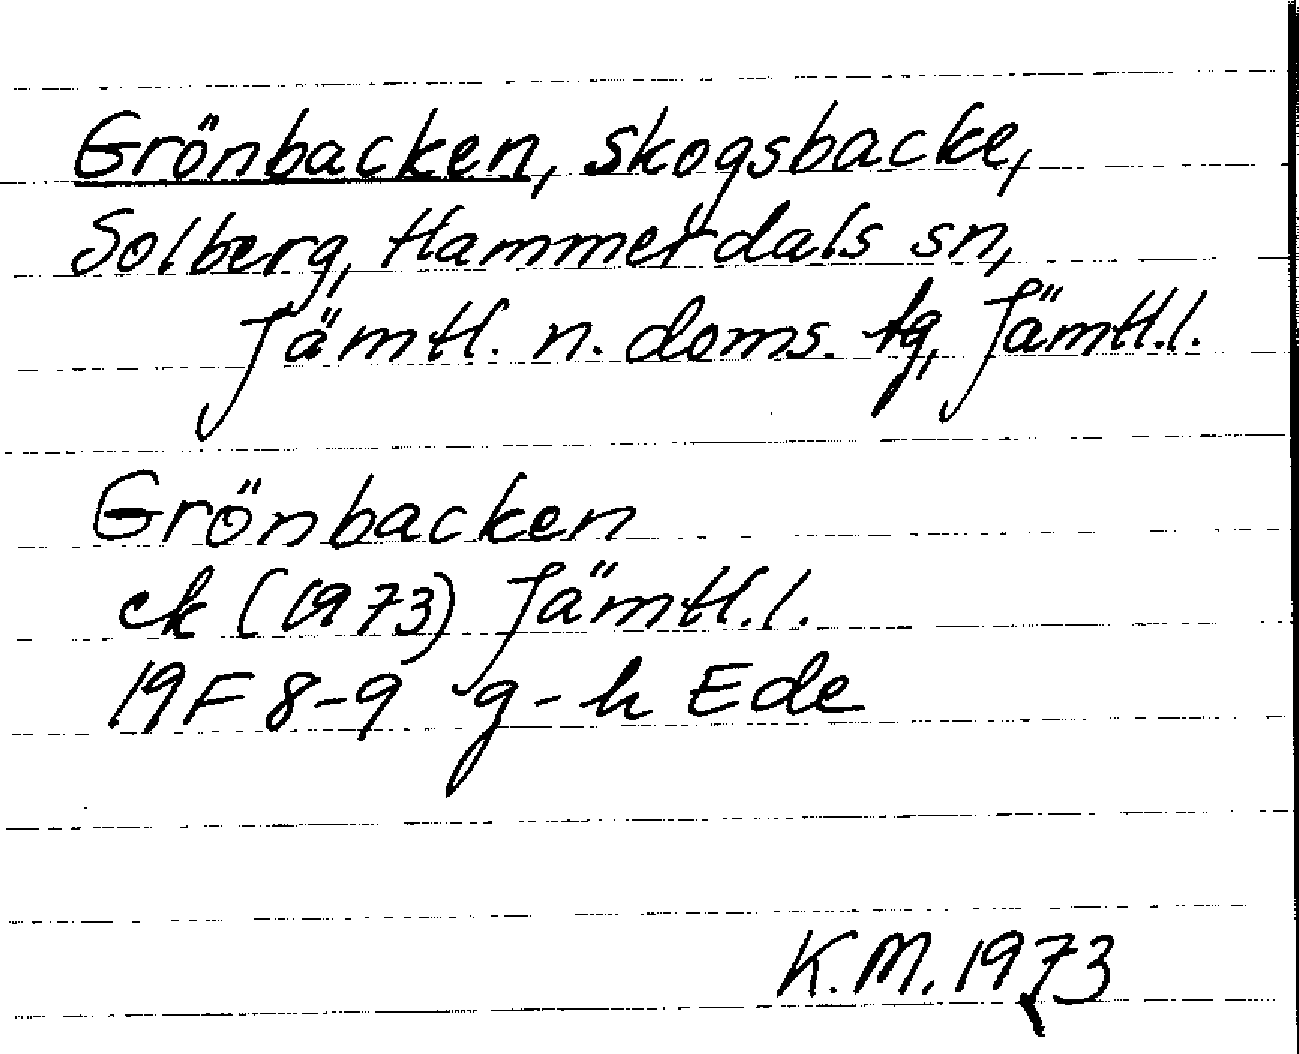 Grönbacken, skogsbacke,
Solberg, Hammerdals sn,
Jämtl. n. doms. tg, Jämtl.l.
Grönbacken
ek (1973) Jämtl.l.
19F 8-9 g-h Ede
K.M. 1973